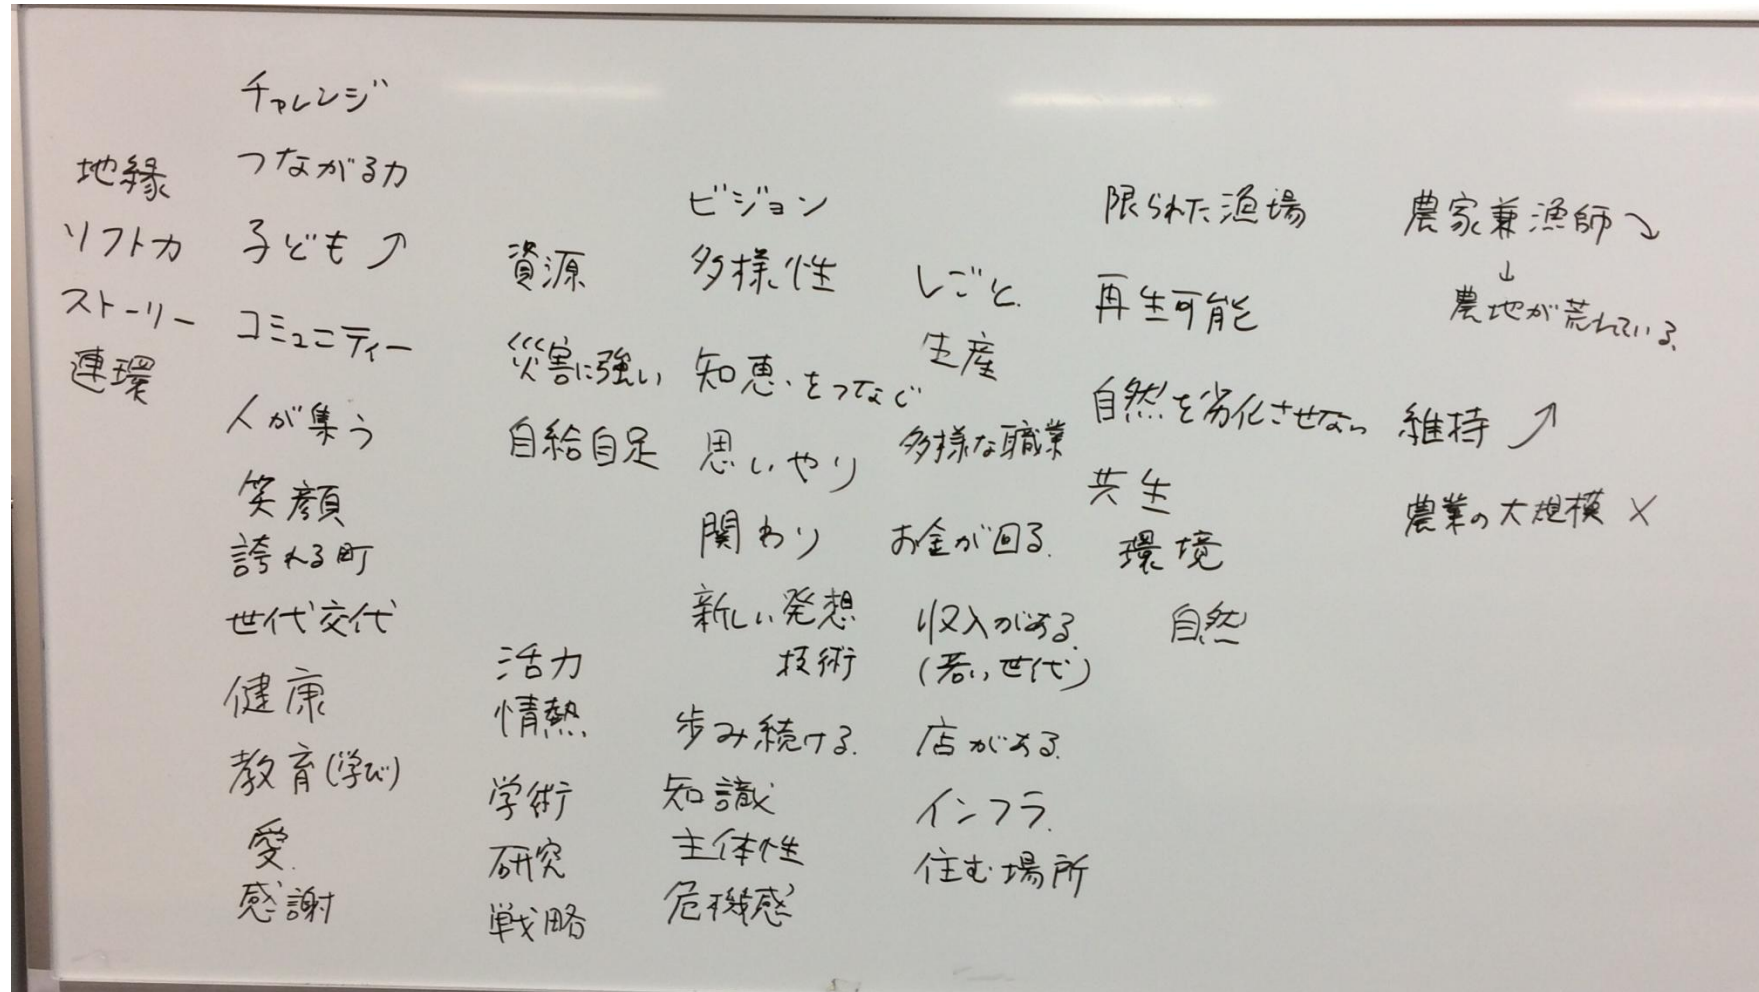 地縁
ソフト力
ストーリー
連環
チャレンジ
つながる力
子ども ↗
コミュニティー
人が集う
笑顔
誇れる町
世代交代
健康
教育(学び)
愛.
感謝
資源
災害に強い
自給自足
活力
情熱
学術
研究
戦略
ビジョン
多様性
知恵をつなぐ
思いやり
関わり
新しい発想
技術
歩み続ける.
知識
主体性
危機感
しごと.
生産
多様な職業
お金が回る.
収入がある.
(若い世代)
店がある.
インフラ.
住む場所
限られた漁場
再生可能
自然を劣化させない
共生
環境
自然
農家兼漁師↘
↓
農地が荒れている.
維持 ↗
農業の大規模 ×